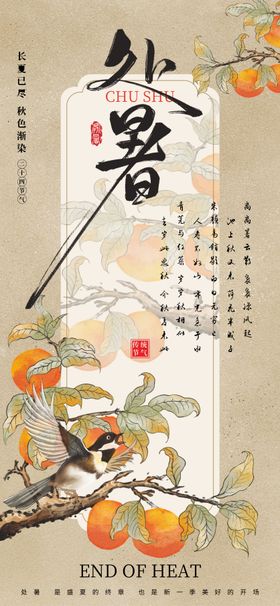 处暑
CHU SHU
长夏已尽 秋色渐染
二十四节气
离离暑云散 袅袅凉风起
池上秋又来 荷花半成子
朱颜易销歇 白日无穷已
人寿不如山 年光急于水
青芜与红蓼 岁岁秋相似
去岁此悲秋 今秋复来此
传统
节气
END OF HEAT
处暑 是盛夏的终章 也是新一季美好的开场